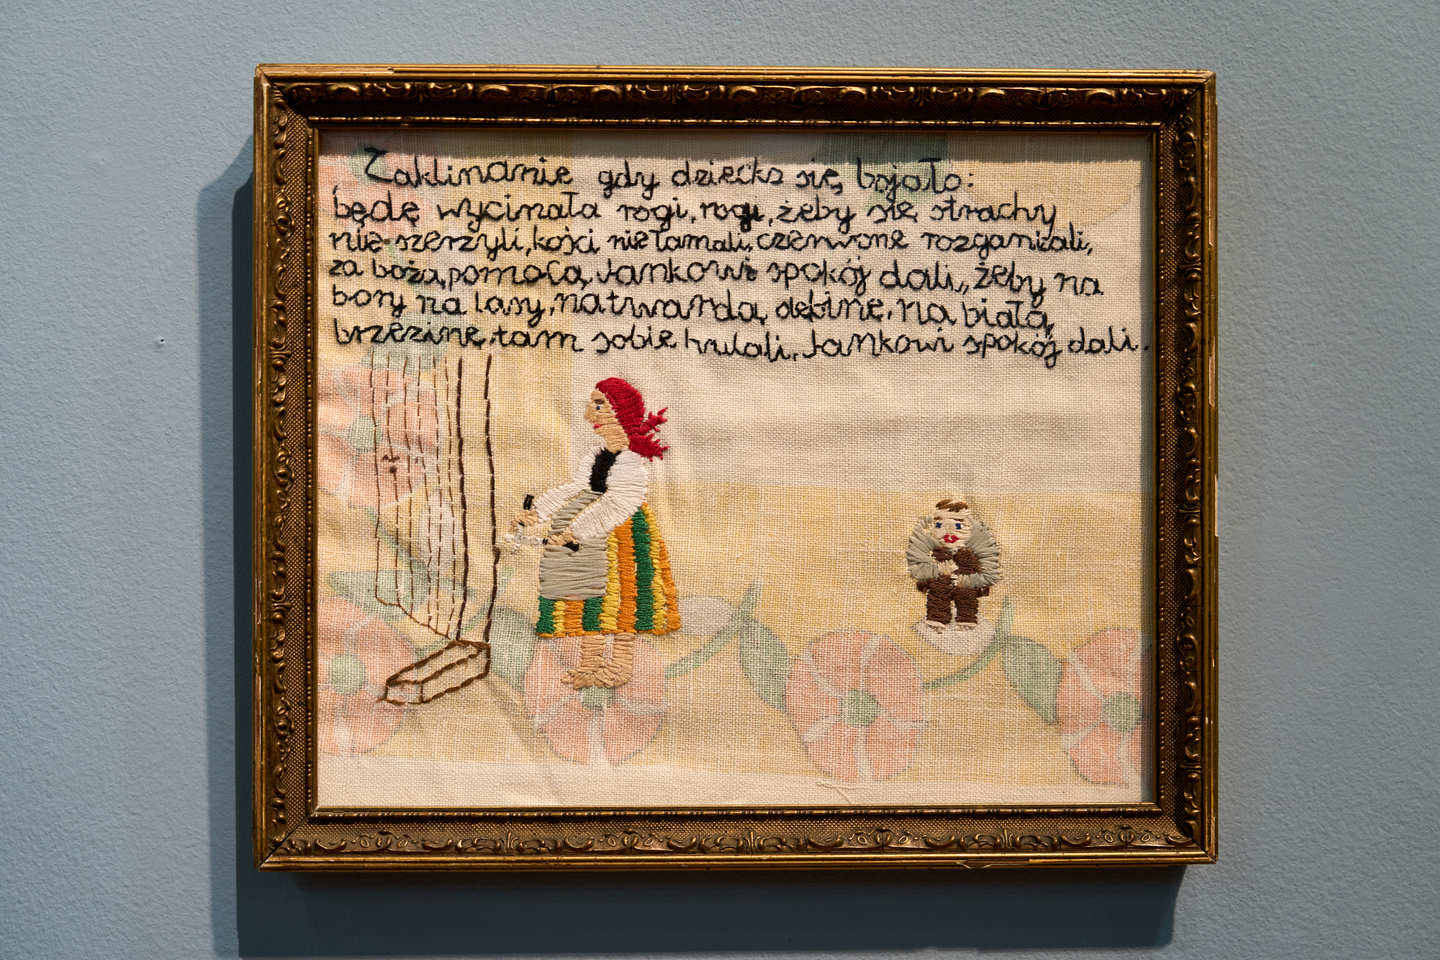 Zaklinanie gdy dziecko się bojało:
będę wycinała rogi, rogi, żeby się strachy
nie szerzyli, kości nie łamali, czerwone rozganiali,
za bożą pomocą, Jankowi spokój dali, żeby na
bory na lasy, na twardą dębinę, na białą
brzezinę, tam sobie hulali, Jankowi spokój dali.